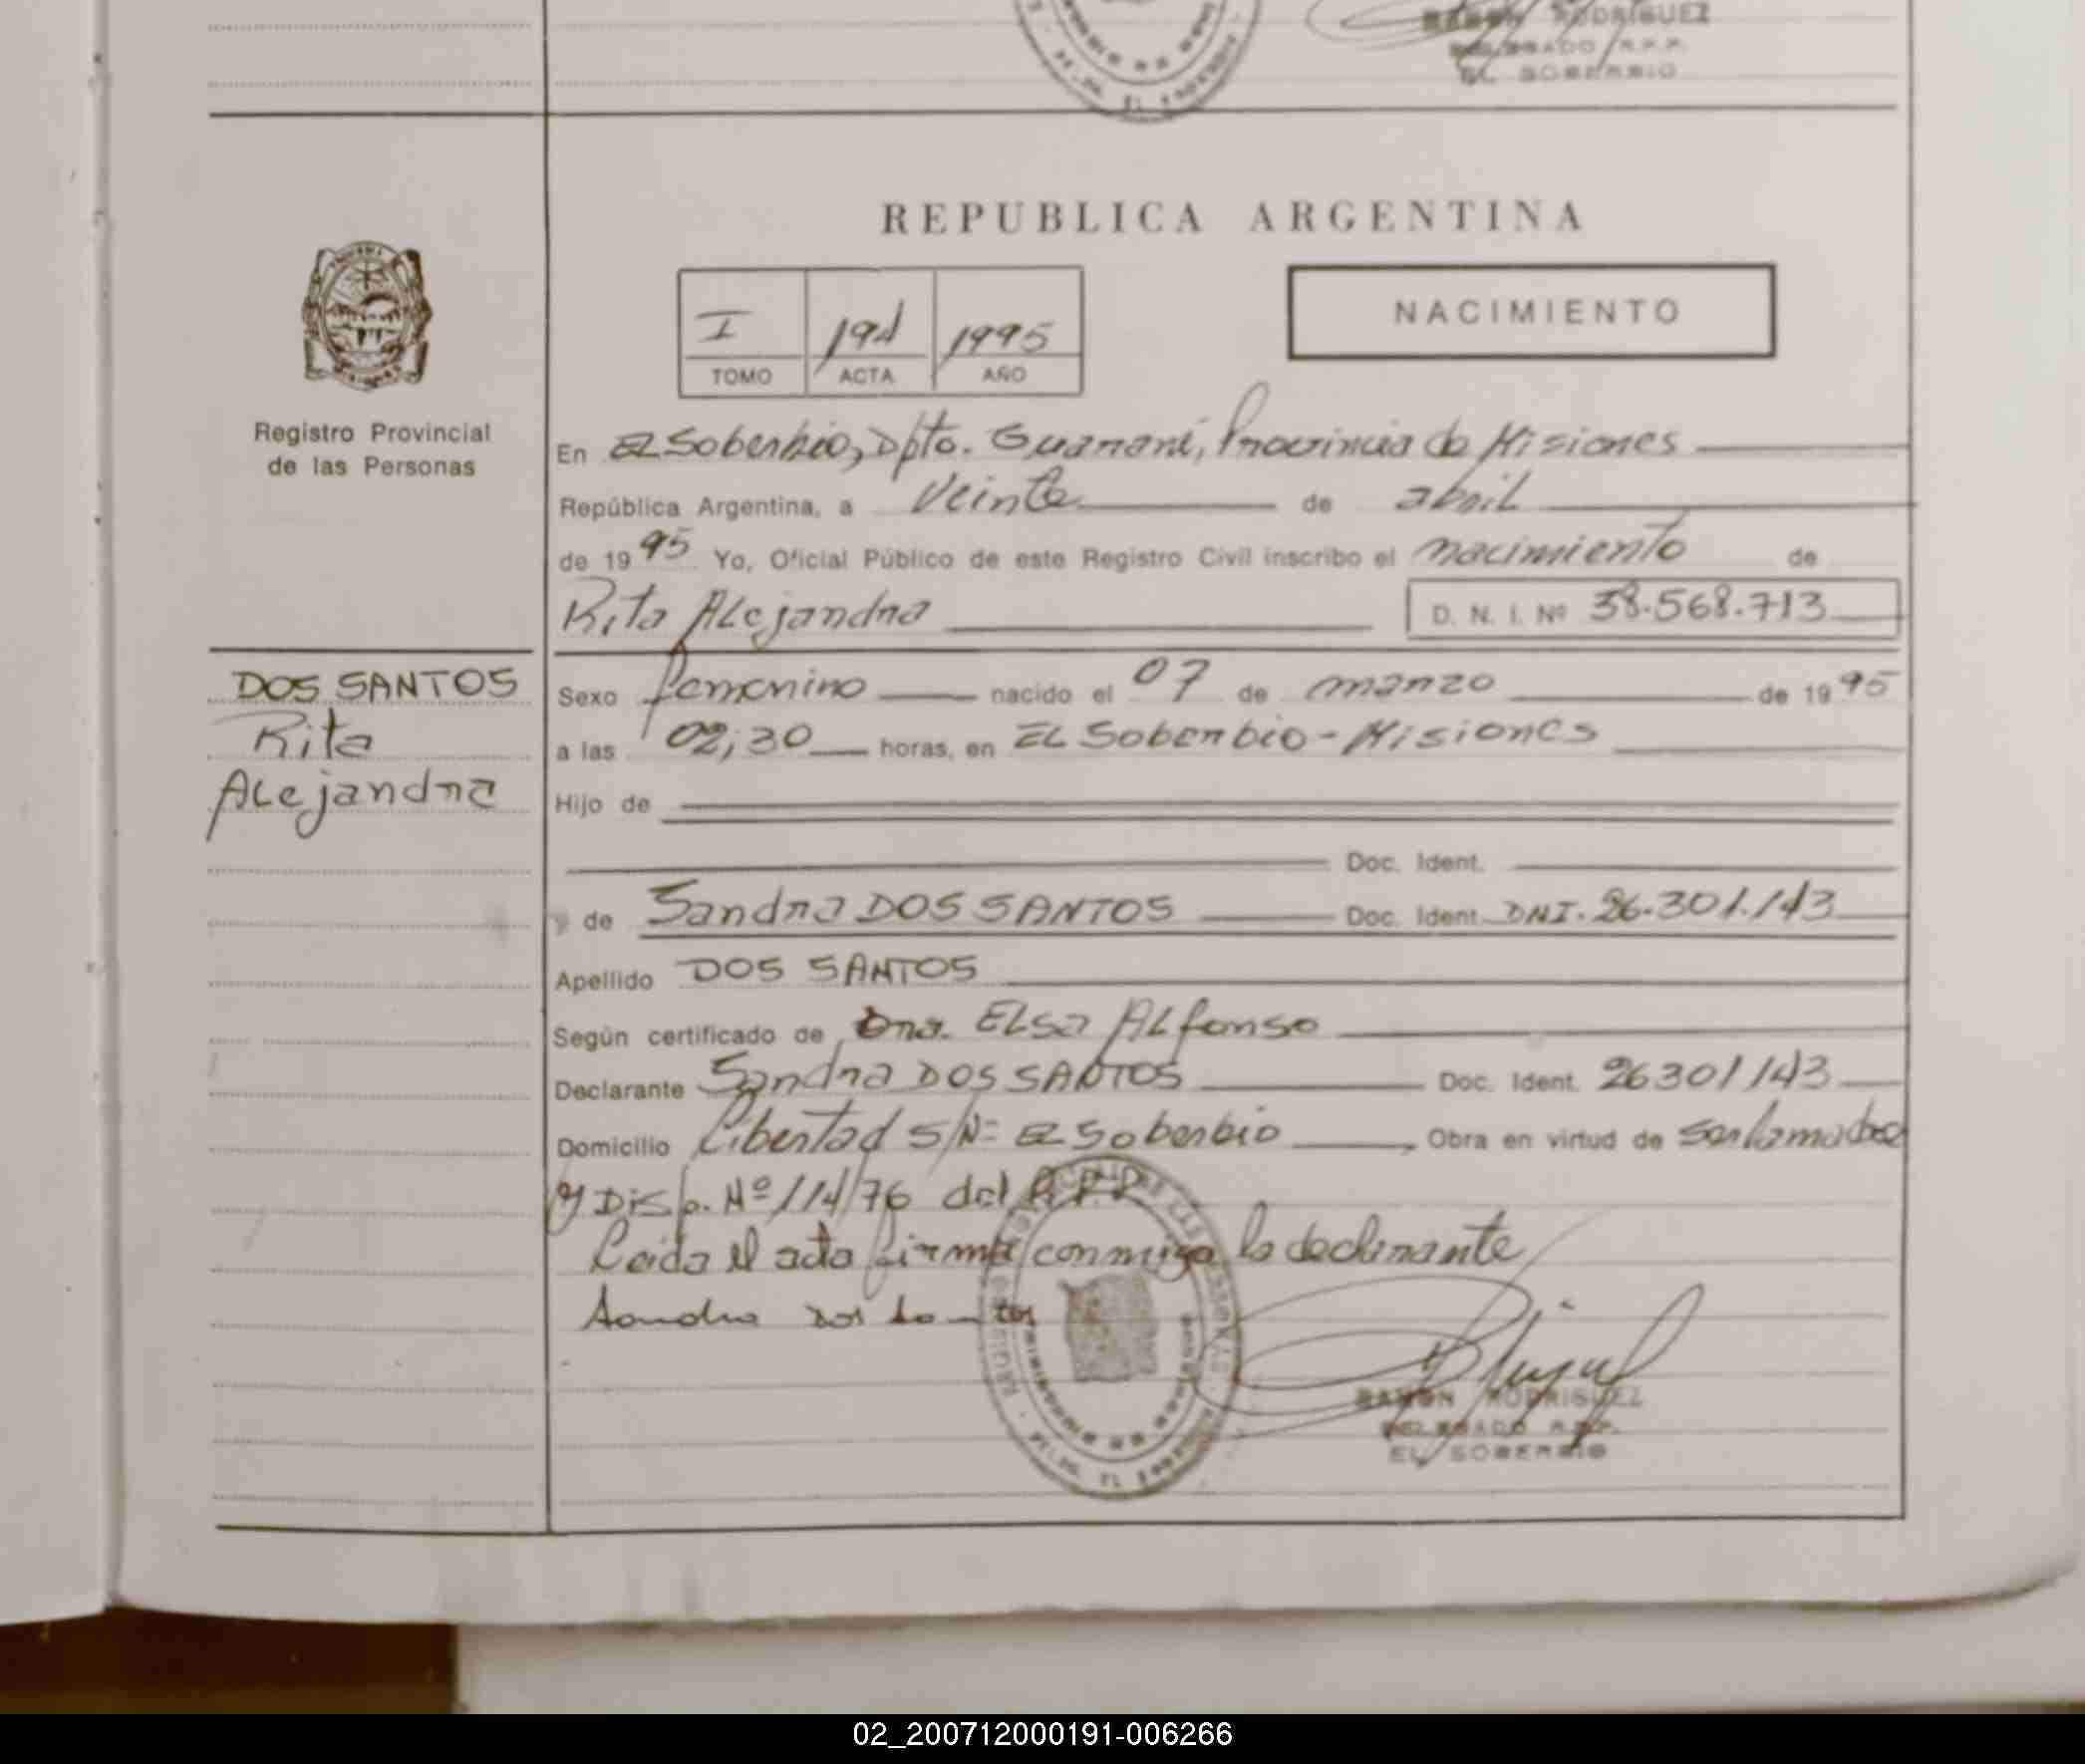 RAMON RODRIGUEZ
DELEGADO R.P.P.
EL SOBERBIO
REPUBLICA ARGENTINA
I
194
1995
TOMO
ACTA
AÑO
NACIMIENTO
Registro Provincial
de las Personas
En El Soberbio, Dpto. Guaraní, Provincia de Misiones
República Argentina, a Veinte de abril
de 1995 Yo, Oficial Público de este Registro Civil inscribo el nacimiento de
Rita Alejandra D. N. I. Nº 38.568.713
DOS SANTOS
Rita
Alejandra
Sexo femenino nacido el 07 de marzo de 1995
a las 02,30 horas, en El Soberbio - Misiones
Hijo de
Doc. Ident.
y de Sandra DOS SANTOS Doc. Ident. DNI. 26.301.143
Apellido DOS SANTOS
Según certificado de Dra. Elsa Alfonso
Declarante Sandra DOS SANTOS Doc. Ident. 26301143
Domicilio Libertad S/Nº El Soberbio, Obra en virtud de ser la madre
y Disp. Nº 114/76 del R.P.P.
Leida el acta firma conmigo la declarante
Sandra Dos Santos
RAMON RODRIGUEZ
DELEGADO R.P.P.
EL SOBERBIO
02_200712000191-006266